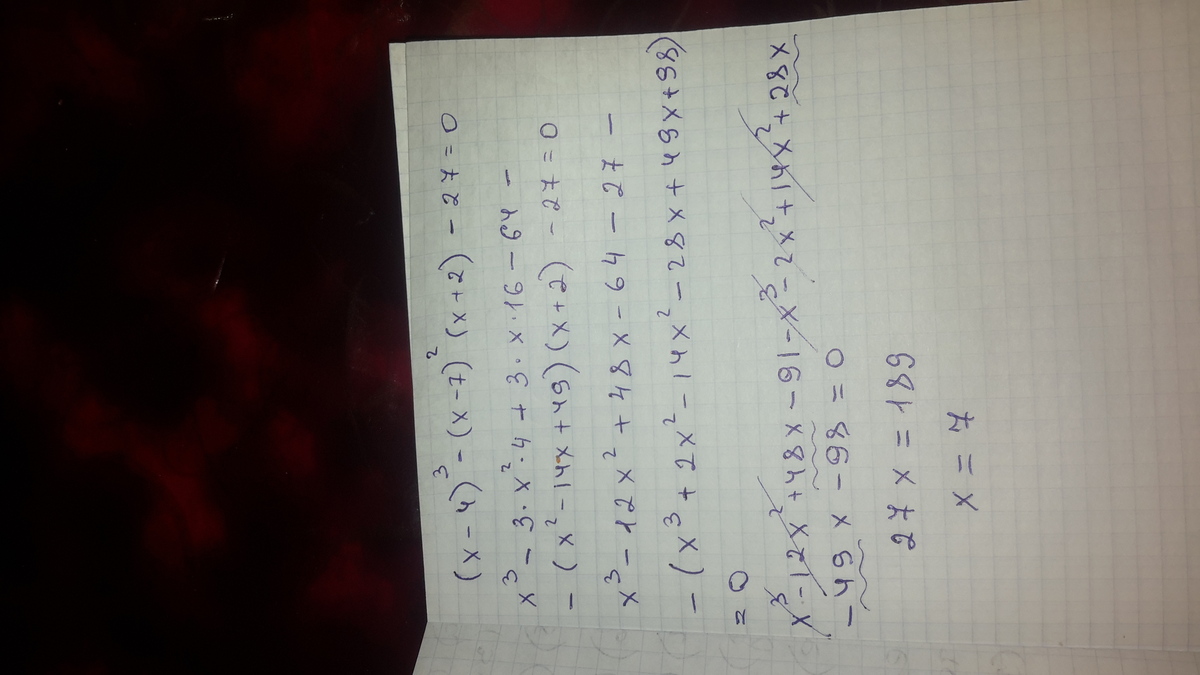 (x-4)³-(x-7)²(x+2)-27=0
x³-3·x²·4+3·x·16-64-
-(x²-14x+49)(x+2)-27=0
x³-12x²+48x-64-27-
-(x³+2x²-14x²-28x+49x+98)
=0
x³-12x²+48x-91-x³-2x²+14x²+28x
-49x-98=0
27x=189
x=7